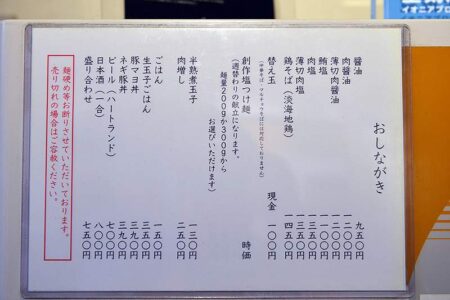 イオニアプロ
おしながき
醤油 九五〇円
肉醤油 一二〇〇円
薄切肉醤油
鮪塩
肉塩
薄切肉塩 一三五〇円
鶏そば(淡海地鶏) 一四五〇円
替え玉 現金 一〇〇円
創作塩つけ麺 時価
(週替わりの献立になります。
麺量200gから300gから
お選びいただけます)
半熟煮玉子 一三〇円
肉増し 二五〇円
ごはん 一五〇円
生玉子ごはん
豚マヨ丼 三九〇円
ネギ豚丼 三九〇円
ビール(ハートランド) 七〇〇円
日本酒(一合) 八〇〇円
盛り合わせ 七五〇円
麺硬め等お断りさせていただいております。
売り切れの場合はご容赦ください。